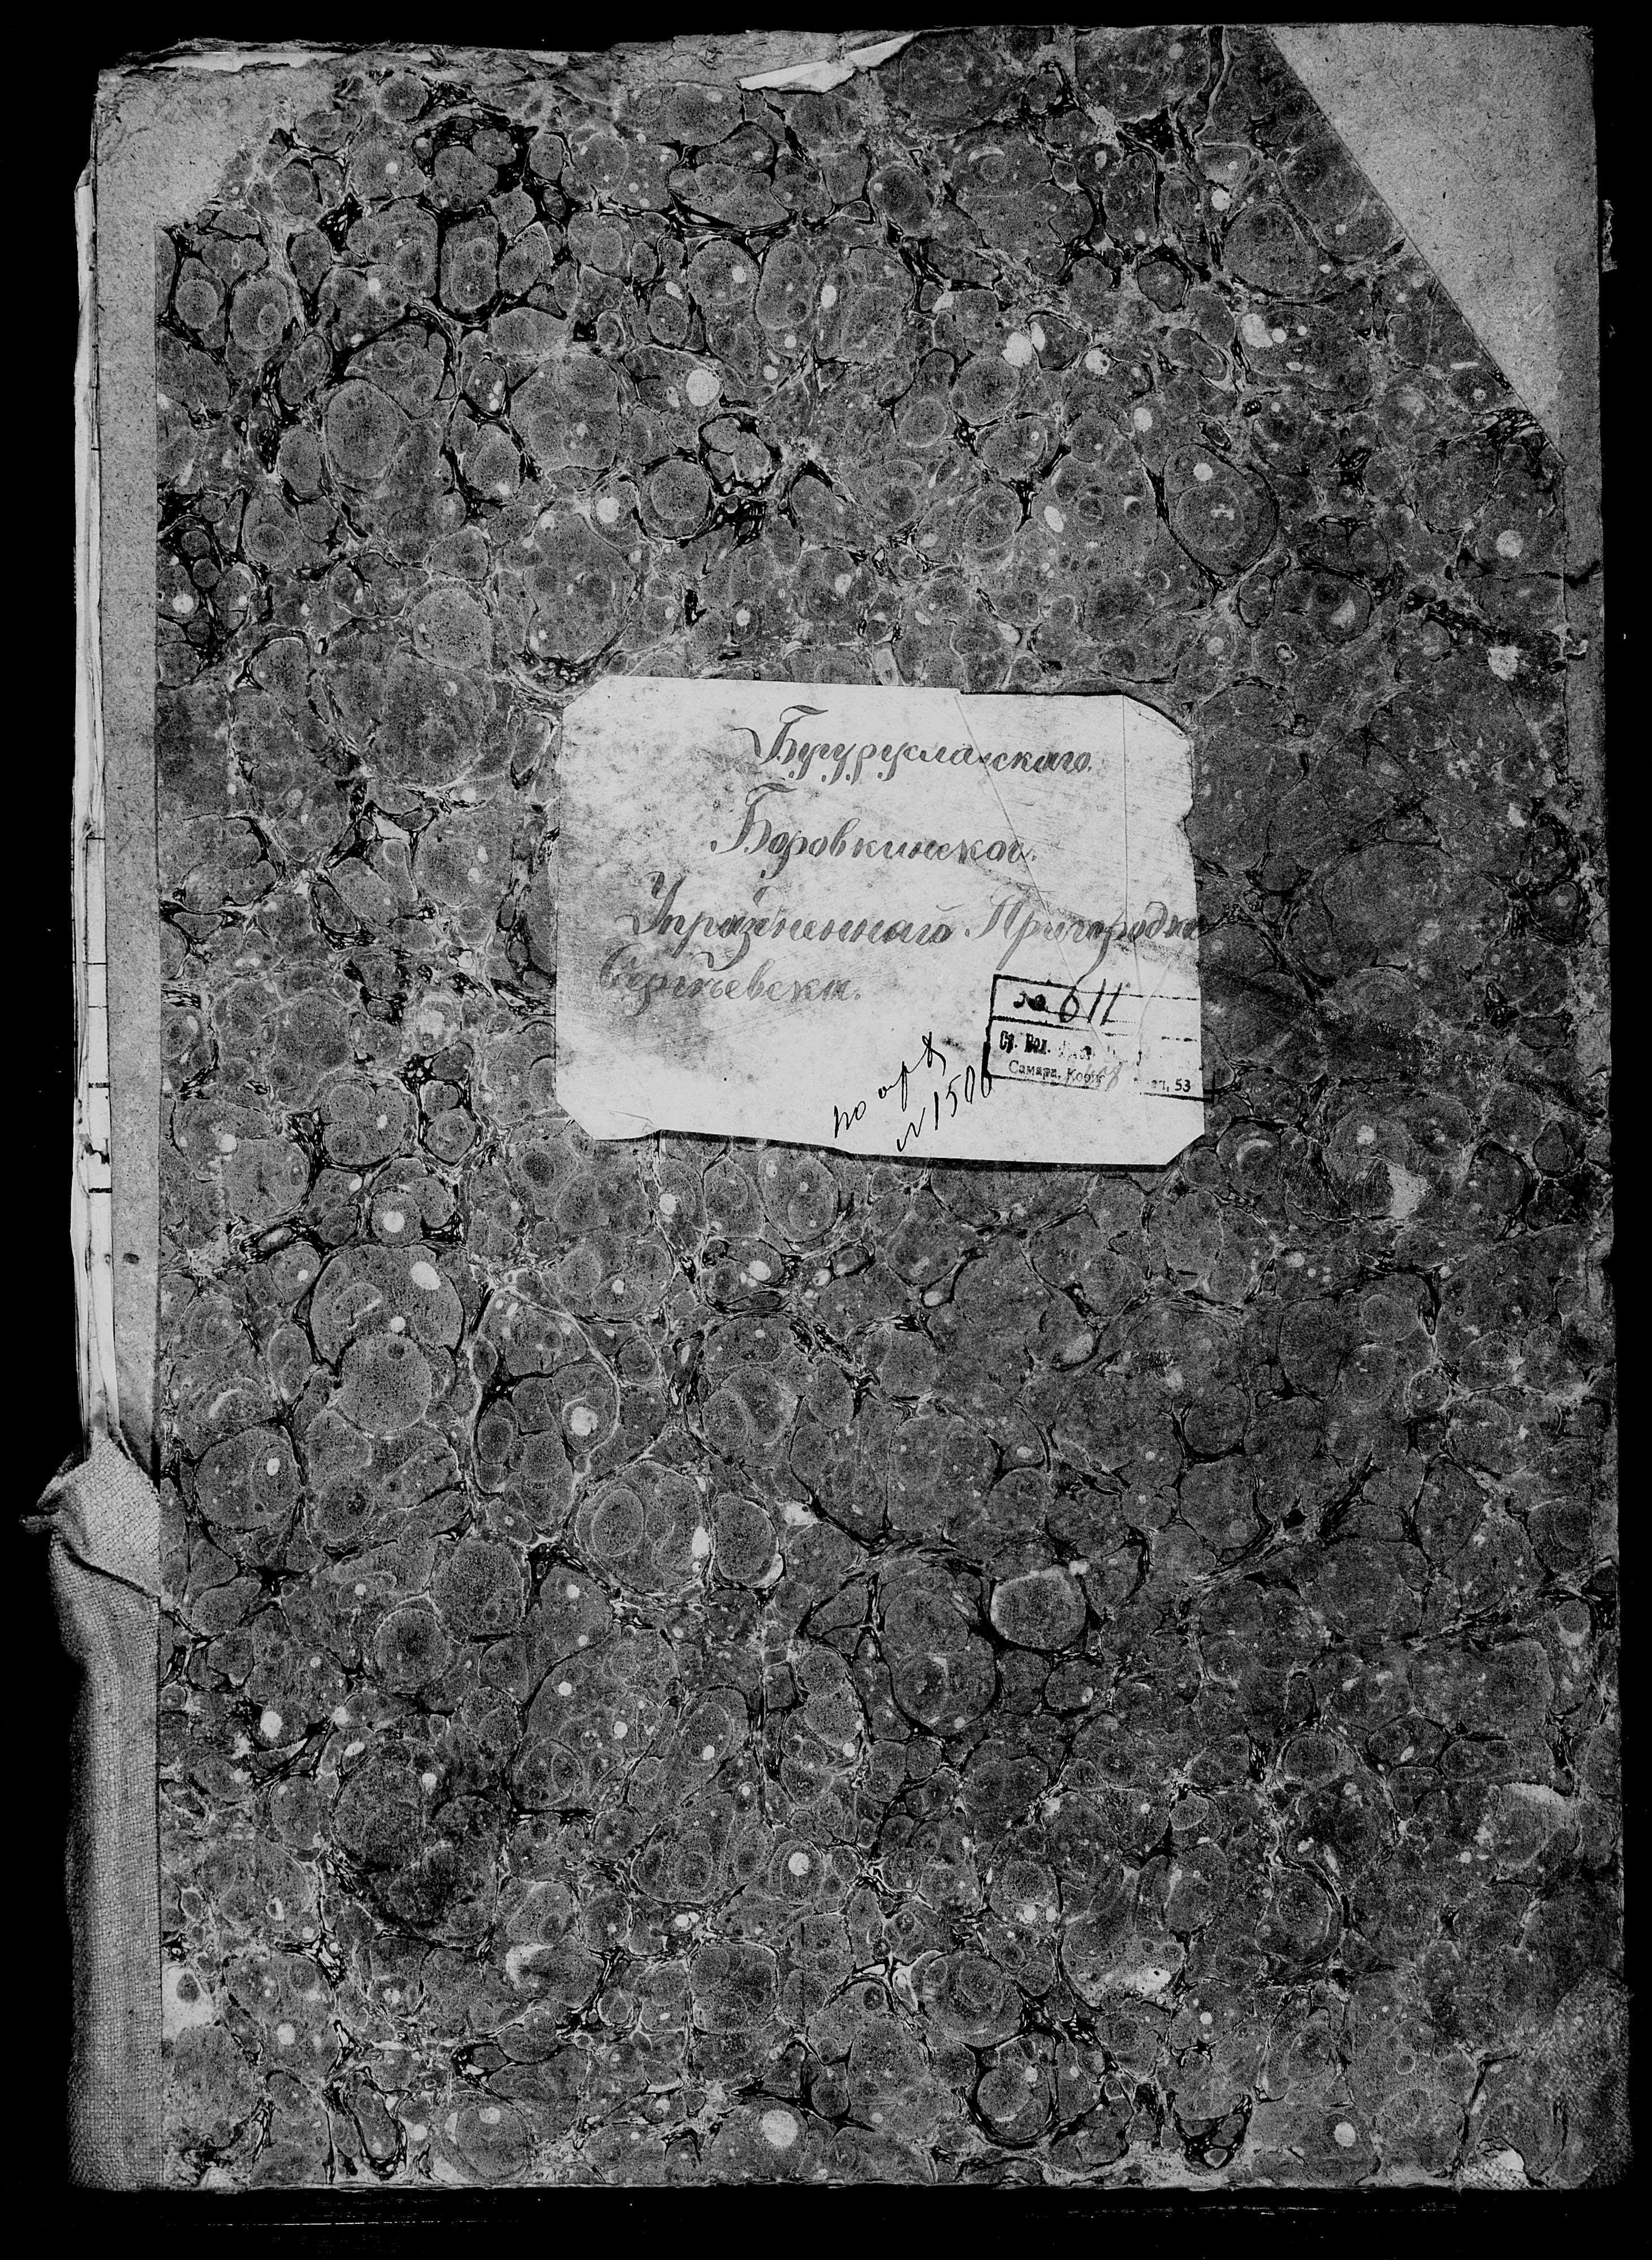 Бугурусланскаго.
Боровкинской.
Упраздненный Пригородка
Сергіевска.
№ 611
Ср. Вол.
Самара, Кооп 53
по опр
№ 1500